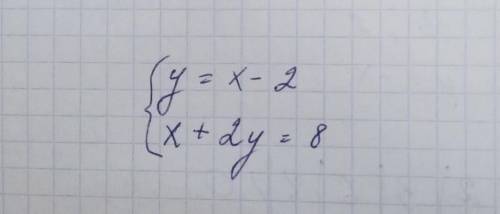 y = x - 2
x + 2y = 8